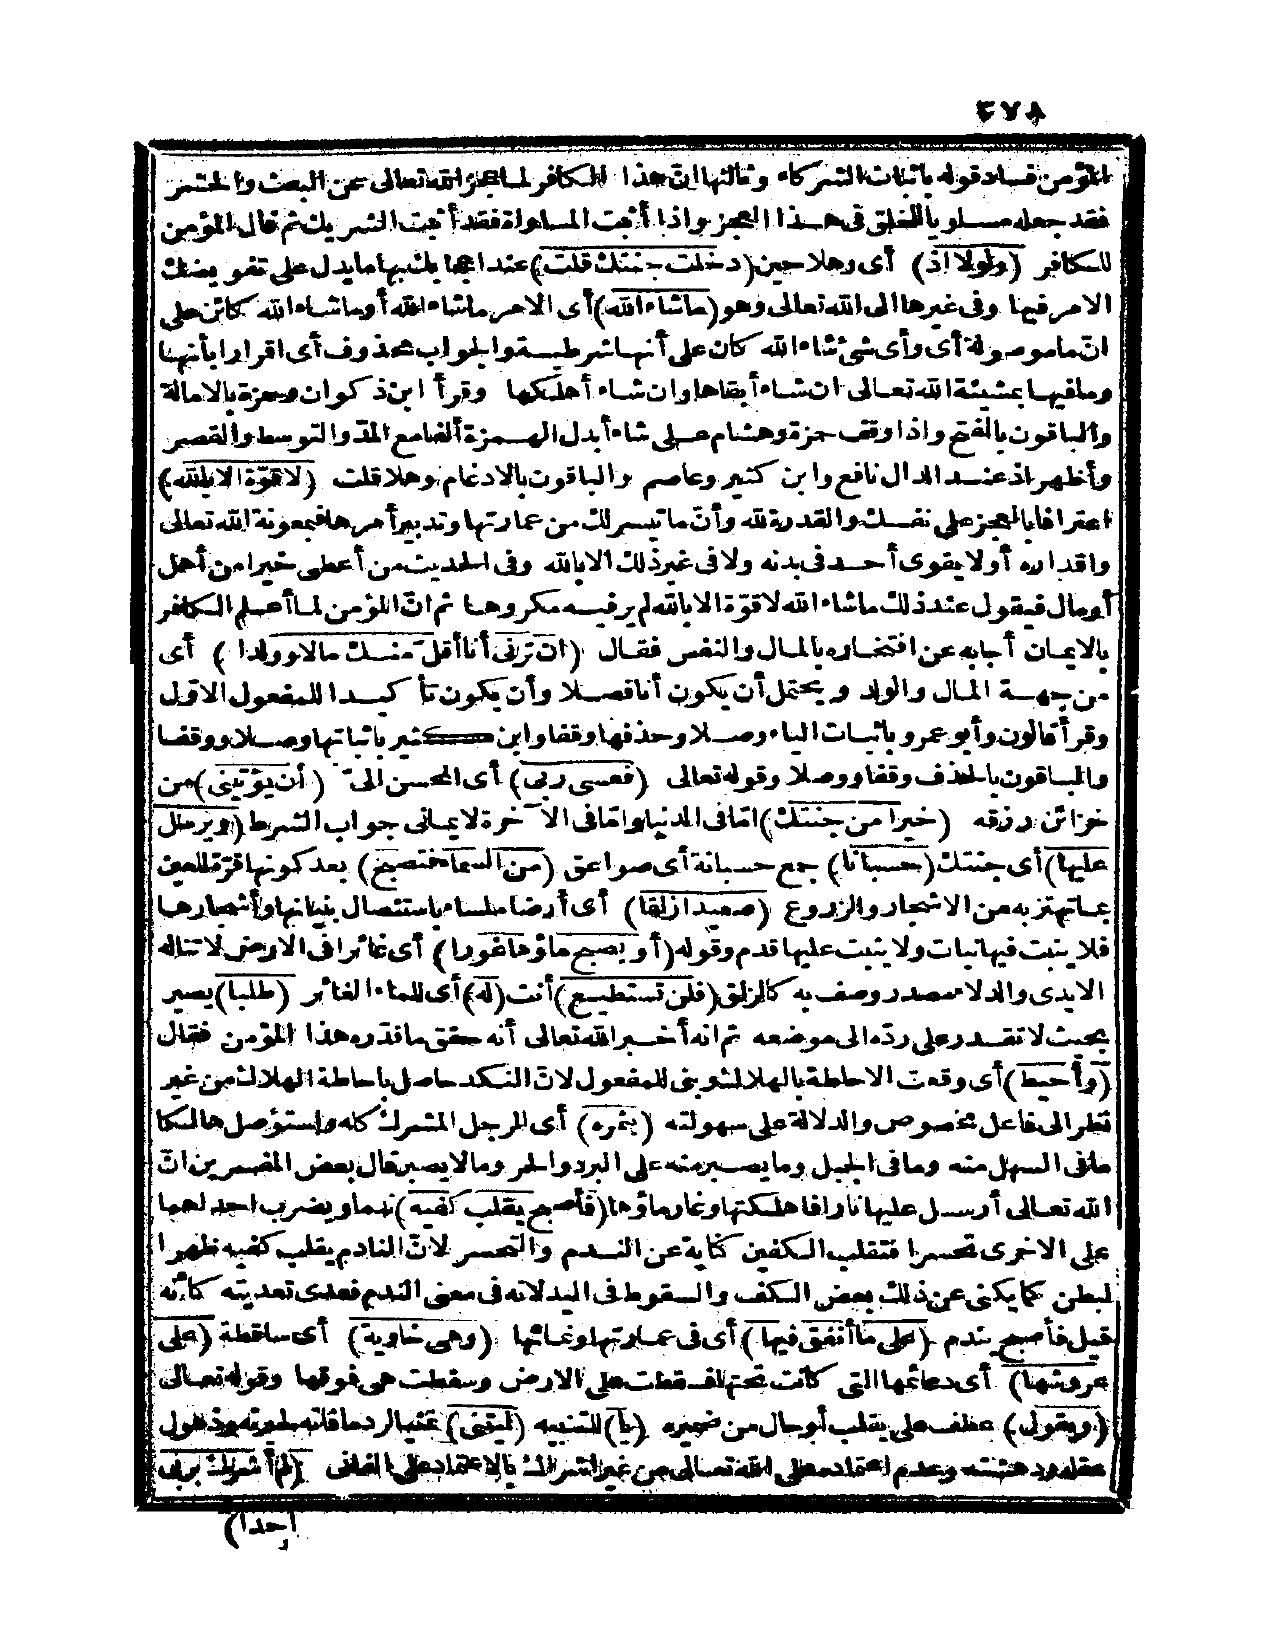 ٣٧٨
المؤمن فساد قوله باثبات الشركاء وثالثها ان هذا الكافر لما عجز الله تعالى عن البعث والحشر
فقد جعله مساويا للخلق فى هـذا العجز واذا أثبت المساواة فقد أثبت الشريك ثم قال المؤمن
للكافر (ولولا اذ) أى وهلا حين (دخلت جنتك قلت) عند اعجابك بها ما يدل على تفويضك
الامر فيها وفى غيرها الى الله تعالى وهو (ماشاء الله) أى الامر ماشاء الله أو ماشاء الله كائن على
انّ ما موصولة أى وأى شئ شاء الله كان على أنها شرطيـة والجواب محذوف أى اقرارا بأنها
وما فيها بمشيئة الله تعـالى ان شاء أبقاها وان شاء أهلكها وقرأ ابن ذكوان وحمزة بالامالة
والباقون بالفتح واذا وقف حمزة وهشام عـلى شاء أبدل الهـمزة ألفا مع المدّ والتوسط والقصر
وأظهر اذ عنـد الدال نافع وابن كثير وعاصم والباقون بالادغام وهلا قلت (لا قوّة الا بالله)
اعترافا بالعجز على نفسـك والقدرة لله وأنّ ما تيسر لك من عمارتها وتدبير أمرها فبمعونة الله تعالى
واقداره أو لا يقوى أحـد فى بدنه ولا فى غير ذلك الا بالله وفى الحديث من أعطى خيرا من أهل
أو مال فيقول عند ذلك ماشاء الله لا قوّة الا بالله لم ير فيـه مكروهـا ثم انّ المؤمن لما أعـلم الكافر
بالايمان أجابه عن افتخاره بالمـال والنفس فقـال (ان ترنى أنا أقل منـك مالا وولدا) أى
من جهـة المـال والولد ويحتمل أن يكون أنا فصـلا وأن يكون تأكيـدا للمفعول الاوّل
وقرأ قالون وأبو عمرو باثبـات الياء وصـلا وحذفها وقفا وابن كثير باثباتها وصـلا ووقفـا
والباقون بالحذف وقفا ووصلا وقوله تعالى (فعسى ربى) أى المحسن الىّ (أن يؤتينى) من
خزائن رزقه (خيرا من جنتك) امّا فى الدنيا وامّا فى الآخرة لايمانى جواب الشرط (ويرسل
عليها) أى جنتك (حسبانا) جمع حسبانة أى صواعق (من السماء فتصبح) بعد كونها قرّة للعين
بما تهتز به من الاشجار والزروع (صعيدا زلقا) أى أرضا ملساء باستئصال بنيانها وأشجارهـا
فلا ينبت فيها نبات ولا يثبت عليها قدم وقوله (أو يصبح ماؤها غورا) أى غائرا فى الارض لا تناله
الايدى والدلاء مصدر وصف به كالزلق (فلن تستطيع) أنت (له) أى للماء الغائر (طلبا) يصير
بحيث لا تقـدر على ردّه الى موضعه ثم انه أخـبر الله تعالى أنه حقق ما قدّره هذا المؤمن فقال
(وأحيط) أى وقعت الاحاطة بالهلاك بنى للمفعول لانّ النكد حاصل باحاطة الهلاك من غير
نظر الى فاعل مخصوص والدلالة على سهولته (بثمره) أى الرجل المشرك كله واستؤصل هالكا
ما فى السهل منه وما فى الجبل وما يصـبر منه على البرد والحر وما لا يصبر قال بعض المفسرين انّ
الله تعـالى أرسـل عليها نارا فأهلكتها وغار ماؤها (فأصبح يقلب كفيه) ندما ويضرب احداهما
على الاخرى تحسرا فتقلب الكفين كناية عن النـدم والتحسر لانّ النادم يقلب كفيه ظهرا
لبطن كما يكنى عن ذلك بعض الكف والسقوط فى اليد لانه فى معنى الندم فعدى تعديته كأنه
قيل فأصبح يندم (على ما أنفق فيها) أى فى عمـارتها ونمائها (وهى خاوية) أى ساقطة (على
عروشها) أى دعائمها التى كانت تحتها فسقطت على الارض وسقطت هى فوقها وقوله تعـالى
(ويقول) عطف على يقلب أو حال من ضميره (يا) للتنبيه (ليتنى) تمنيا لرد ما فاته لحيرته وذهول
عقله ودهشته وعدم اعتماده على الله تعـالى من غير اشراك بالاعتماد على الفانى (لم أشرك بربى
أحدا)